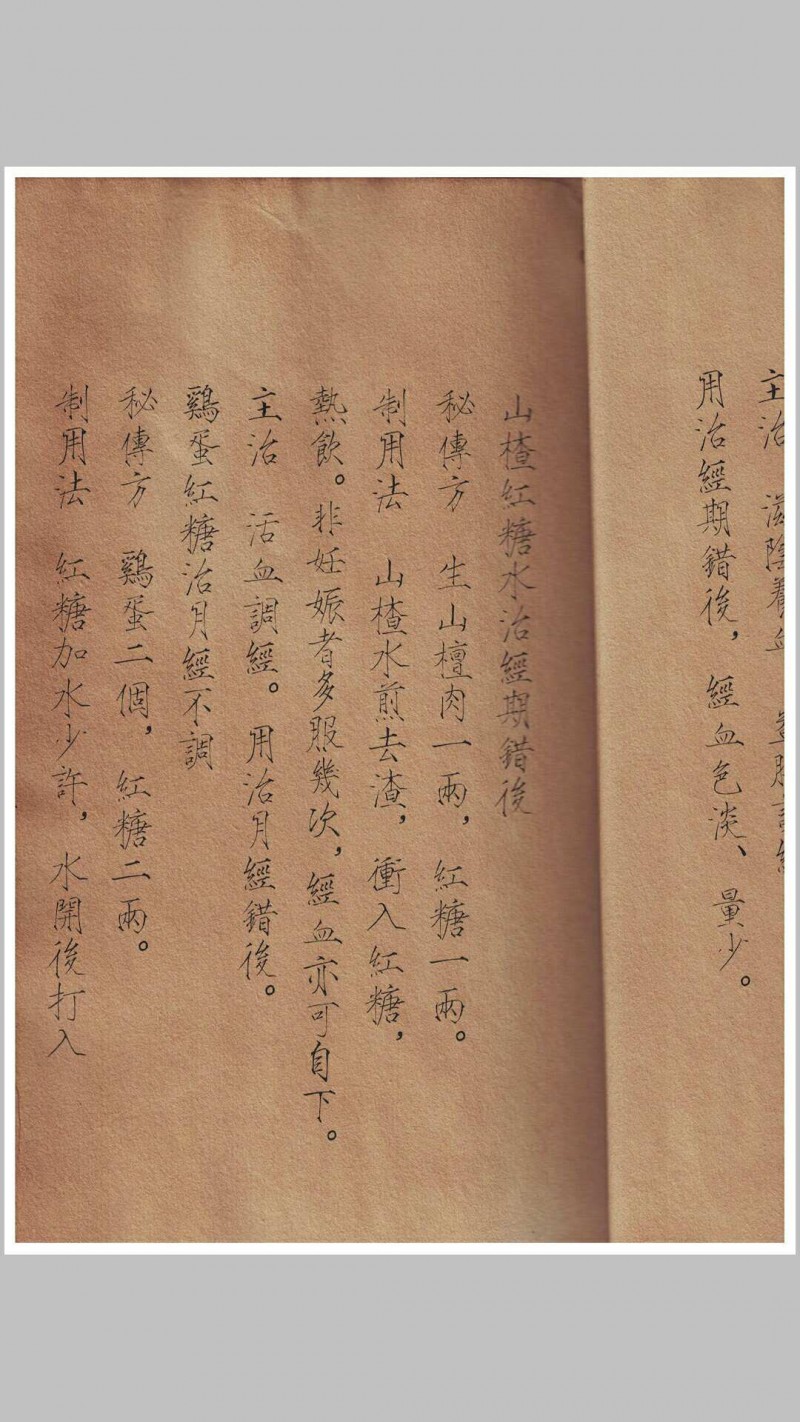 主治　滋陰養血
用治經期錯後，經血色淡、量少。
山楂紅糖水治經期錯後
秘傳方　生山檀肉一兩，紅糖一兩。
制用法　山楂水煎去渣，衝入紅糖，
熱飲。非妊娠者多服幾次，經血亦可自下。
主治　活血調經。用治月經錯後。
鷄蛋紅糖治月經不調
秘傳方　鷄蛋二個，紅糖二兩。
制用法　紅糖加水少許，水開後打入